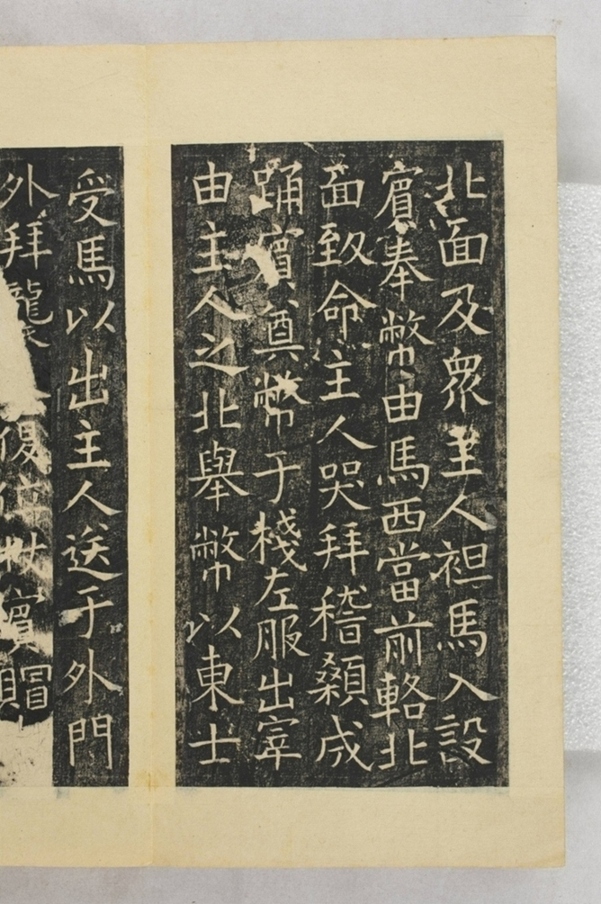 北面及衆主人袒馬入設
賓奉幣由馬西當前輅北
面致命主人哭拜稽顙成
踊賓奠幣于棧左服出宰
由主人之北舉幣以東士
受馬以出主人送于外門
外拜襲入復位杖賓賵